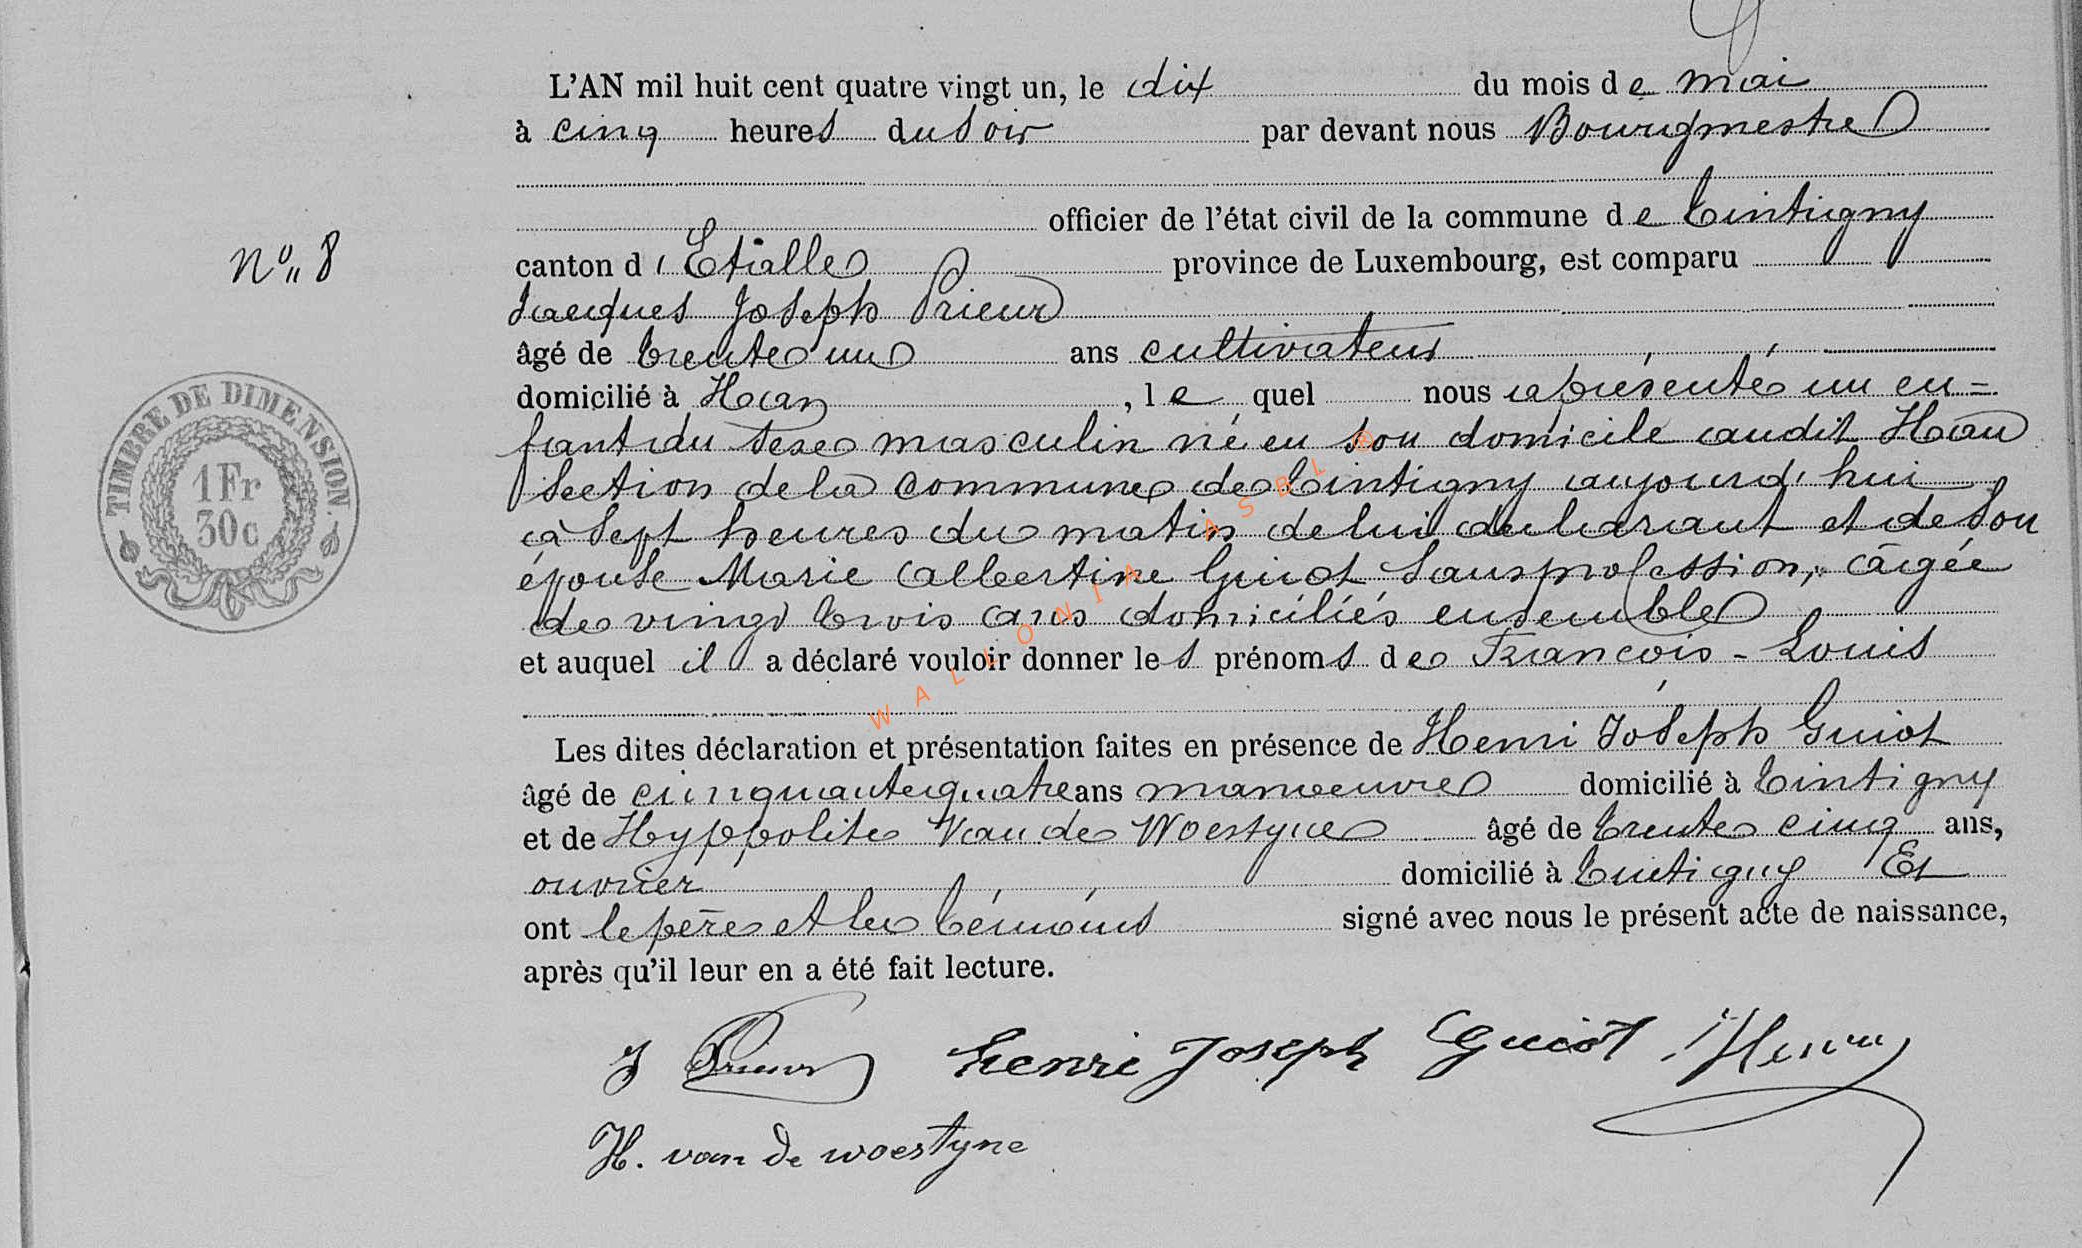 L'AN mil huit cent quatre vingt un, le dix du mois de mai
à cinq heures du soir par devant nous Bourgmestre
officier de l'état civil de la commune de Tintigny
canton d'Etalle province de Luxembourg, est comparu
N° 8
Jacques Joseph Prieur
âgé de trente un ans cultivateur
domicilié à Han, lequel nous a présenté un en=
fant du sexe masculin né en son domicile audit Han
section de la commune de Tintigny aujourd'hui
à sept heures du matin de lui déclarant et de son
épouse Marie Albertine Guiot sans profession, âgée
de vingt trois ans domiciliés ensemble
et auquel il a déclaré vouloir donner les prénoms de François - Louis
Les dites déclaration et présentation faites en présence de Henri Joseph Guiot
âgé de cinquante quatre ans manoeuvre domicilié à Tintigny
et de Hyppolite Van de Woestyne âgé de trente cinq ans,
ouvrier domicilié à Tintigny Et
ont le père et les témoins signé avec nous le présent acte de naissance,
après qu'il leur en a été fait lecture.
TIMBRE DE DIMENSION.
1 Fr
30c
WALLONIA ASBL ®
J Prieur henri Joseph Guiot
H. van de woestyne